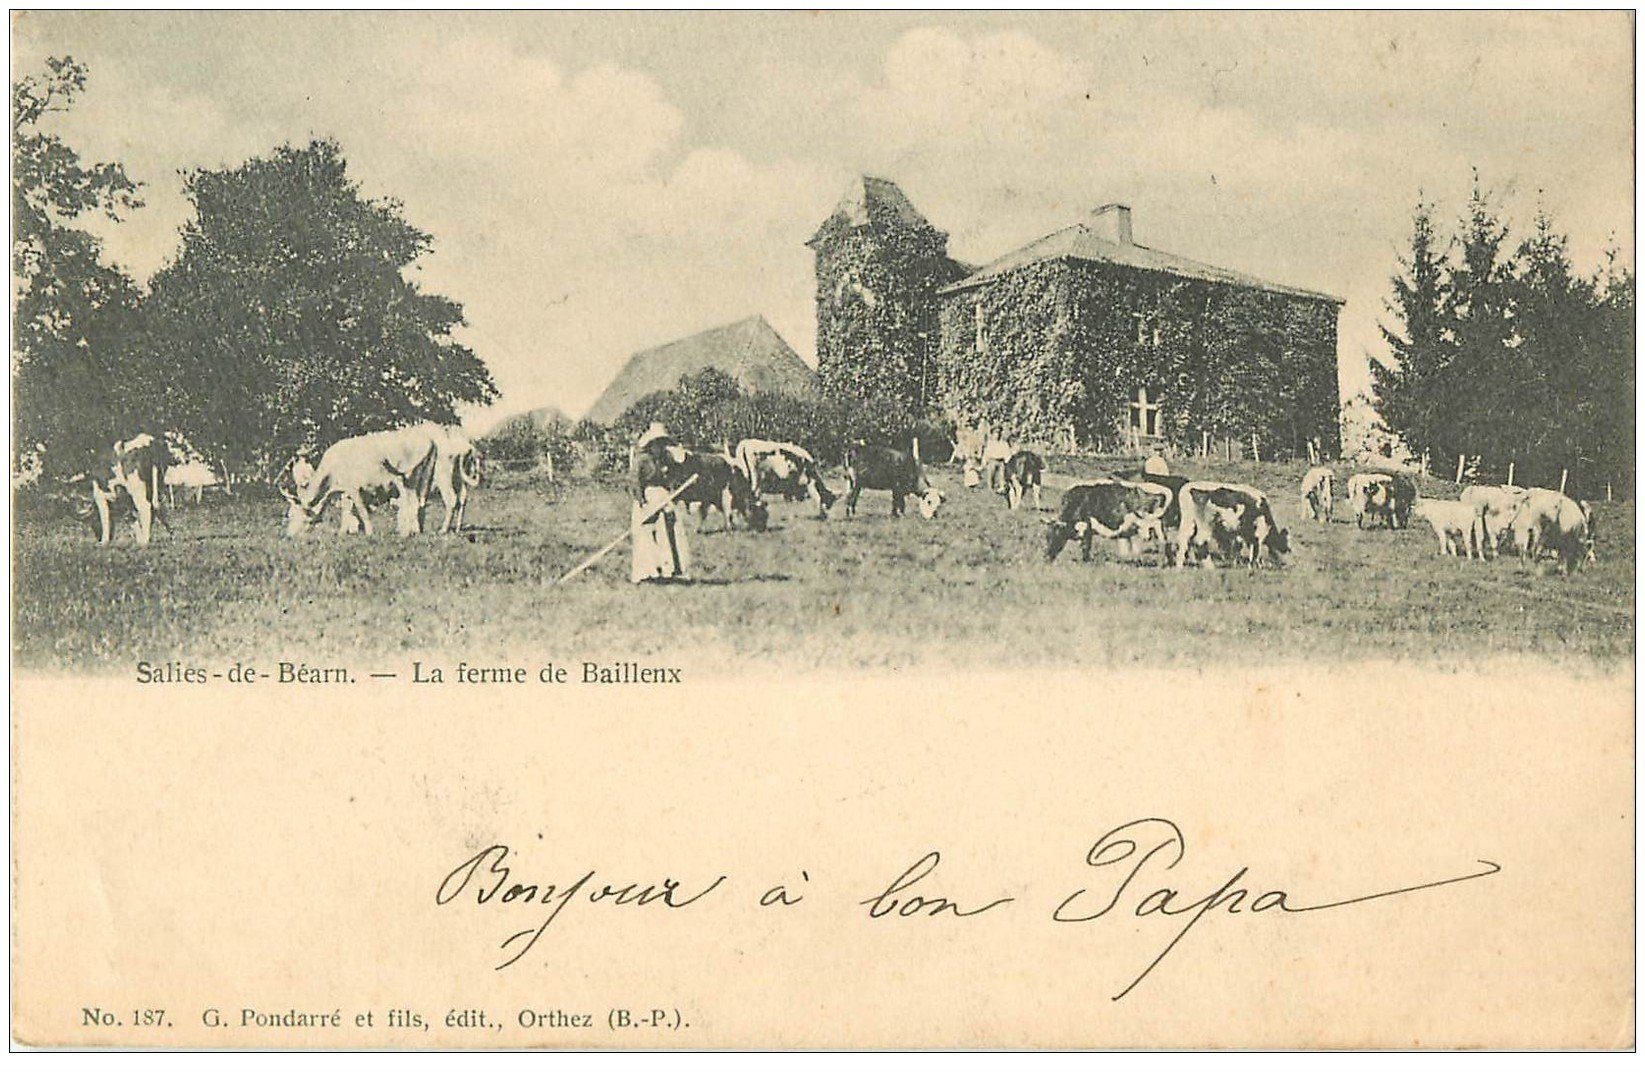 Salies-de-Béarn. — La ferme de Baillenx
Bonjour à bon Papa
No. 187. G. Pondarré et fils, édit., Orthez (B.-P.).